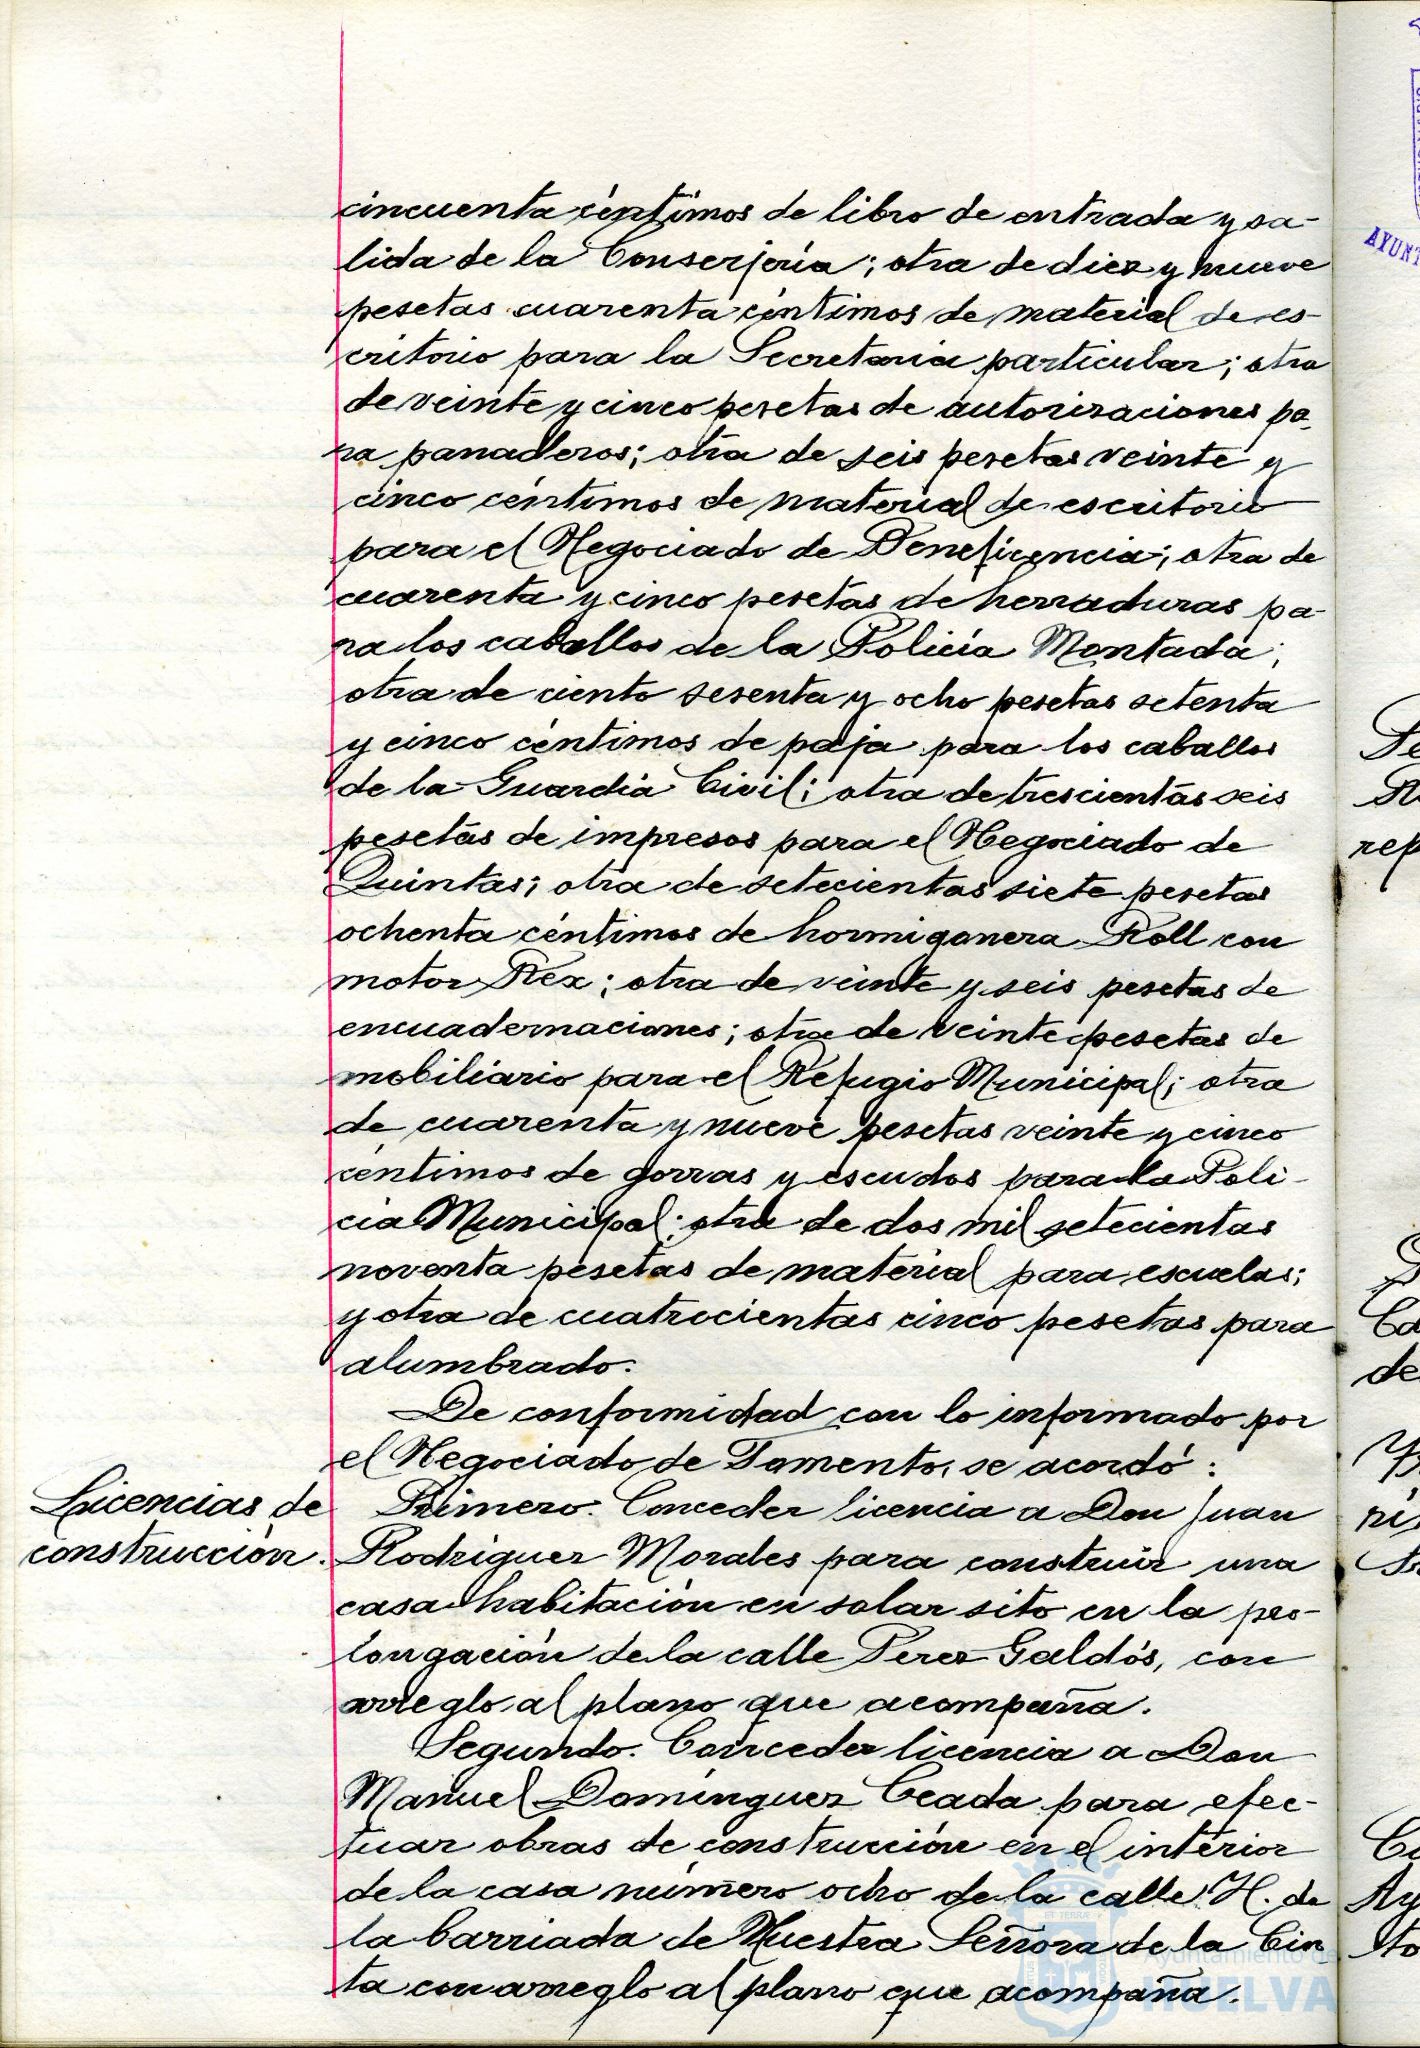 cincuenta céntimos de libro de entrada y sa-
lida de la Conserjería; otra de diez y nueve
pesetas cuarenta céntimos de material de es-
critorio para la Secretaría particular; otra
de veinte y cinco pesetas de autorizaciones pa-
ra panaderos; otra de seis pesetas veinte y
cinco céntimos de material de escritorio
para el Negociado de Beneficencia; otra de
cuarenta y cinco pesetas de herraduras pa-
ra los caballos de la Policía Montada;
otra de ciento sesenta y ocho pesetas setenta
y cinco céntimos de paja para los caballos
de la Guardia Civil; otra de trescientas seis
pesetas de impresos para el Negociado de
Quintas; otra de setecientas siete pesetas
ochenta céntimos de hormigonera Roll con
motor Rex; otra de veinte y seis pesetas de
encuadernaciones; otra de veinte pesetas de
mobiliario para el Refugio Municipal; otra
de cuarenta y nueve pesetas veinte y cinco
céntimos de gorras y escudos para la Poli-
cia Municipal; otra de dos mil setecientas
noventa pesetas de material para escuelas;
y otra de cuatrocientas cinco pesetas para
alumbrado.
De conformidad con lo informado por
el Negociado de Fomento, se acordó:
Licencias de
construcción.
Primero. Conceder licencia a Don Juan
Rodriguez Morales para construir una
casa habitación en solar sito en la pro-
longación de la calle Perez Galdós, con
arreglo al plano que acompaña.
Segundo. Conceder licencia a Don
Manuel Dominguez Ceada para efec-
tuar obras de construcción en el interior
de la casa número ocho de la calle H. de
la barriada de Nuestra Señora de la Cin-
ta con arreglo al plano que acompaña.
Ayuntamiento de
HUELVA
AYUNT
rep
de